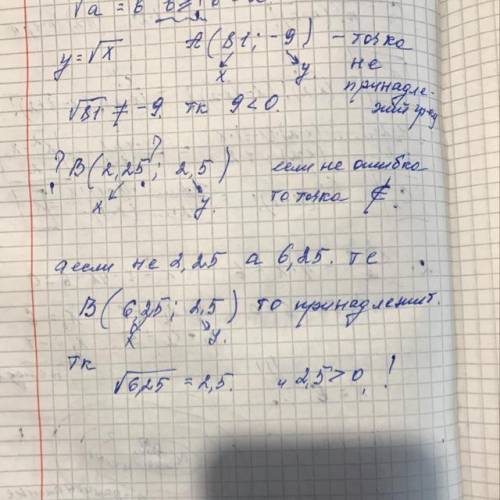 √a = b b ≥
y=√x A(81; -9) - точка
x y не
принадле-
√81 ≠ -9. тк 9<0. жит
? B(2,25; 2,5) если не ошибка
?
x y то точка ∉.
а если не 2,25 а 6,25. те
B(6,25; 2,5) то принадлежит.
x y.
тк
√6,25 = 2,5. и 2,5>0!